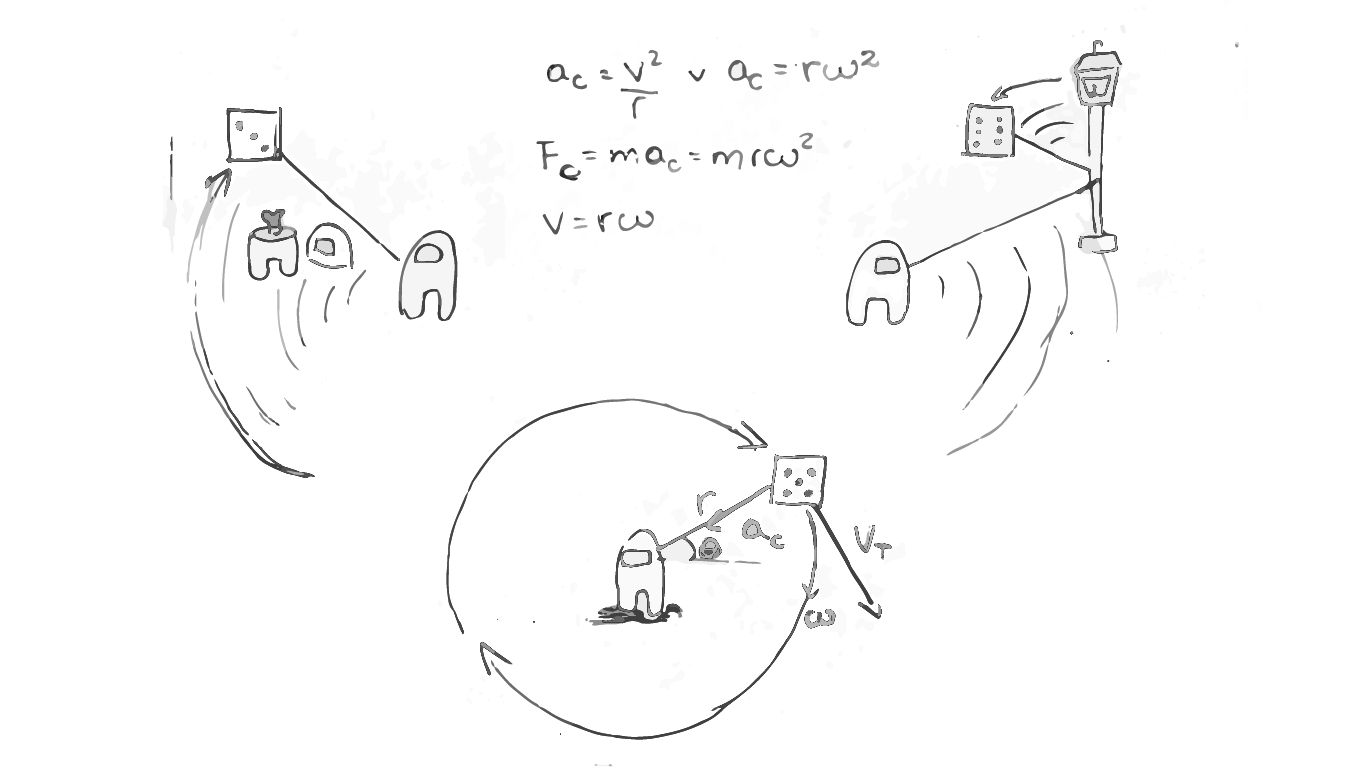 a_c = v²/r v a_c = rω²
F_c = ma_c = mrω²
v = rω
r
a_c
θ
V_T
ω